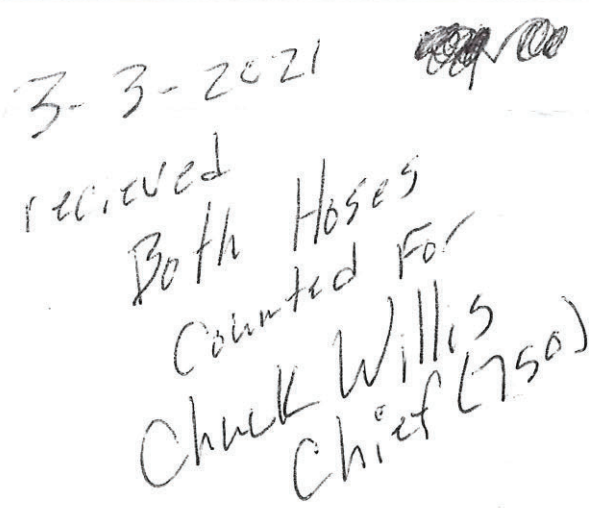 3-3-2021
recieved
Both Hoses
Counted For
Chuck Willis
Chief (750)